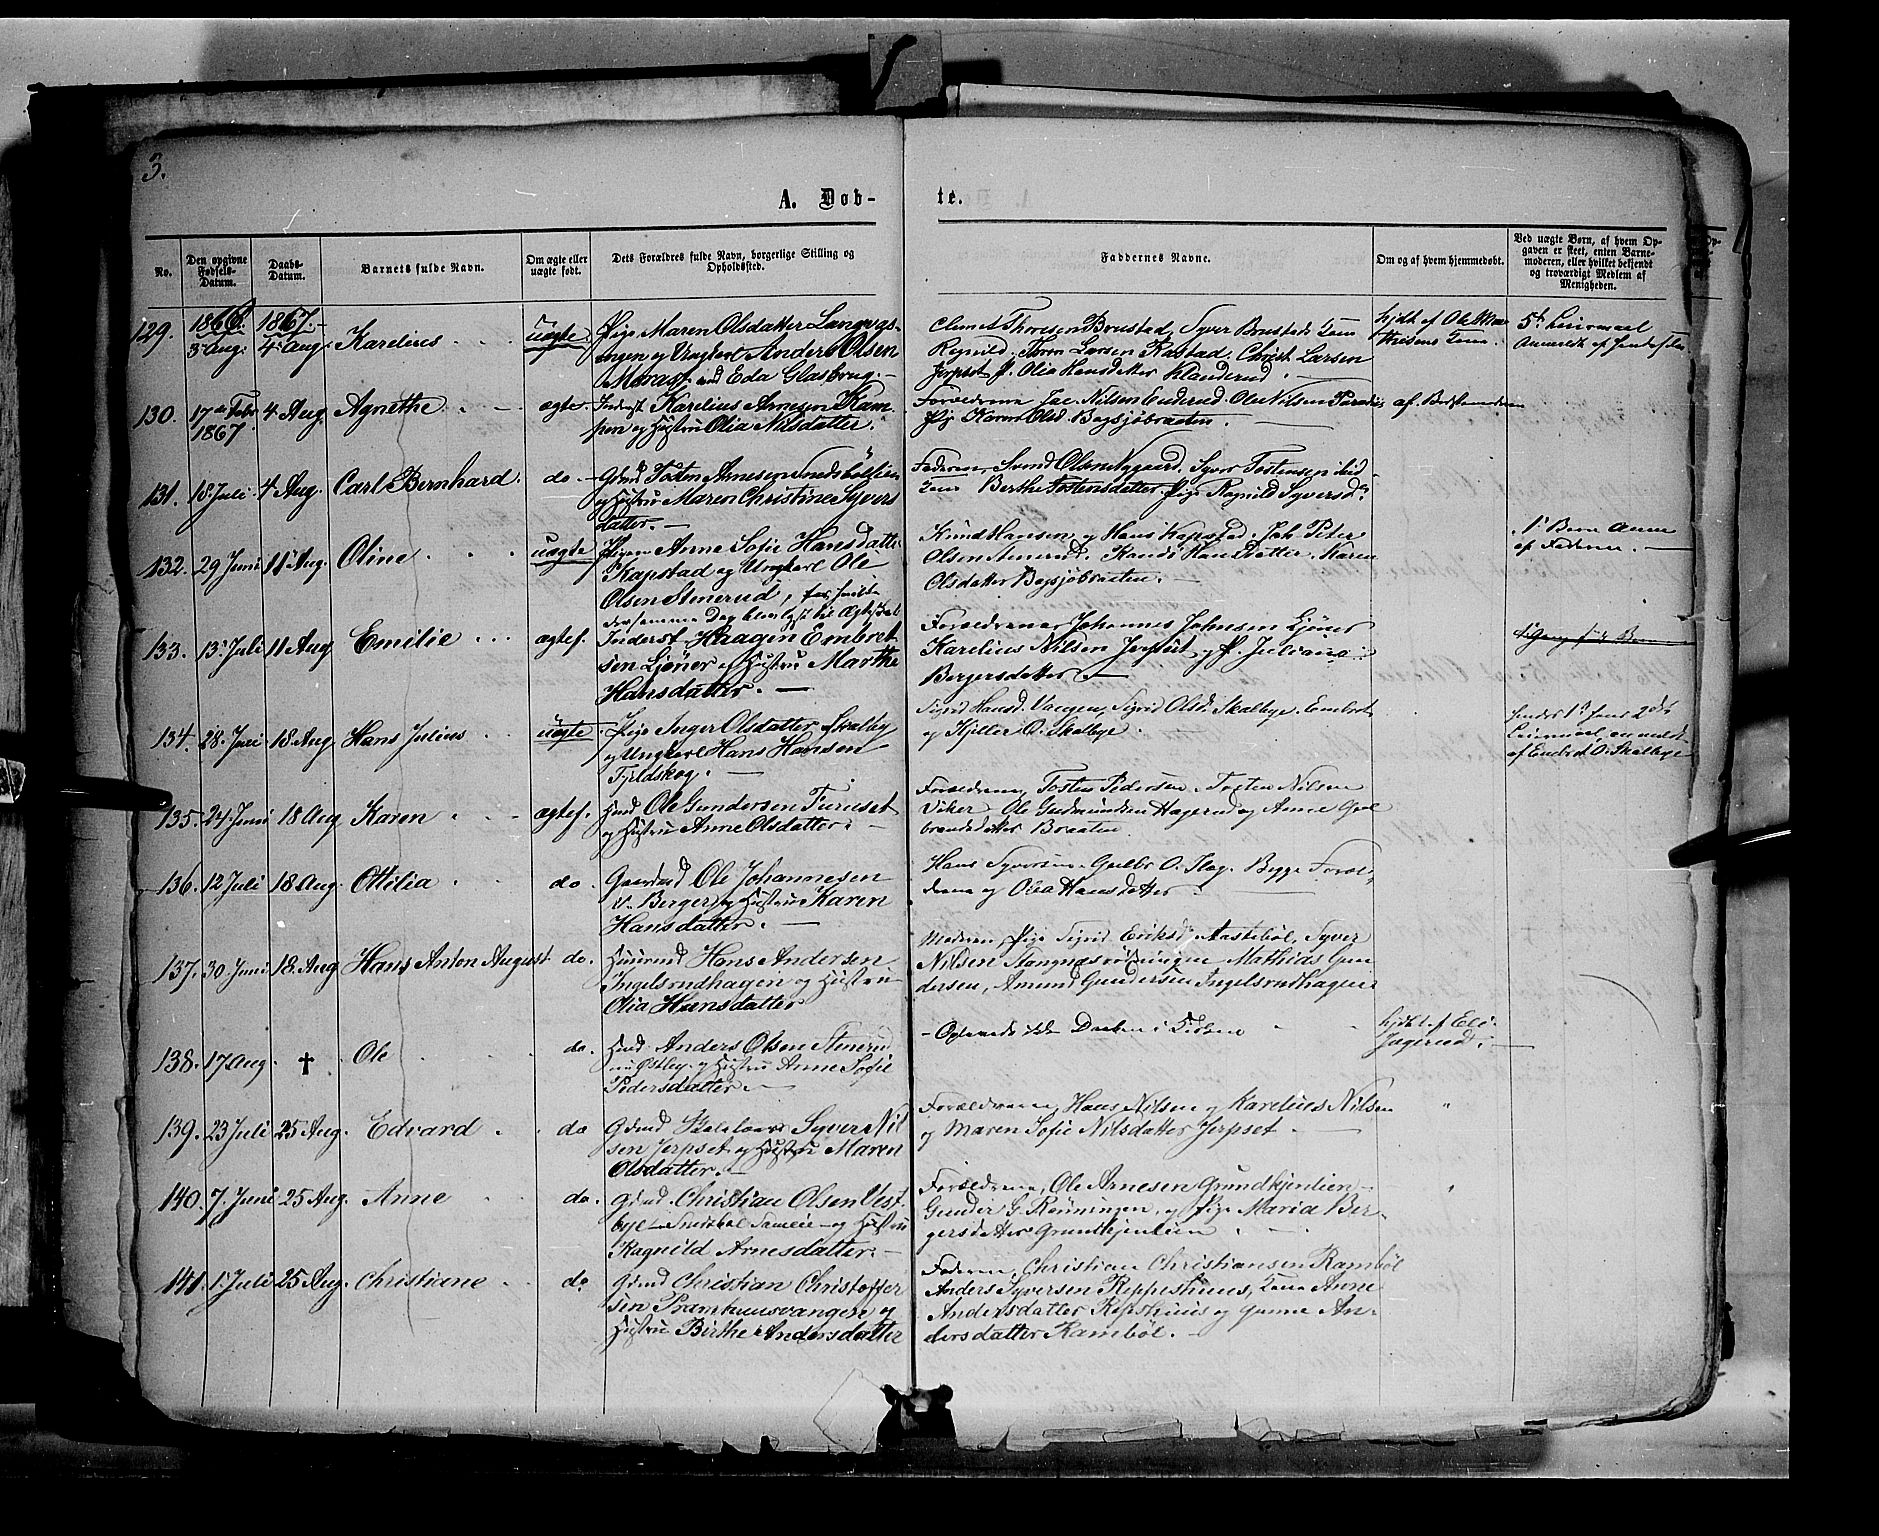 3.
A. Døb-
te.
No.
Den opgivne Fødsels-Datum.
Daabs-Datum.
Barnets fulde Navn.
Om ægte eller uægte født.
Dets Forældres fulde Navn, borgerlige Stilling og Opholdssted.
Faddernes Navne.
Om og af hvem hjemmedøbt.
Ved uægte Børn, af hvem Opgaven er skeet, enten Barnemoderen, eller hvilket bekjendt og troværdigt Medlem af Menigheden.
129. 1866. 3 Aug. 1867. 4 Aug. Karelius uægte.
Pige Maren Olsdatter Langvgs-
engen og Ungkarl Anders Olsen
Morast ved Eda Glasbrug.
Clemet Thoresen Brustad, Syver Brustads Kone
Regnild, Thron Larsen Rastad. Christ. Larsen
Jerpset P. Olia Hansdatter Klanderud.
hjdt af Ole
Kone.
5t Leiermaal
Anmeldt af
130. 17de Febr 1867 4 Aug. Agnethe ægte.
Inderst Karelius Arnesen Kam-
pen og Hustru Olia Nilsdatter.
Forældrene Jac. Nilsen Enderud. Ole Nilsen Paradis
Pig Karen Olsd. Bagsjøbraaten.
af Bedstemoderen
131. 18 Juli 4 Aug. Carl Bernhard. do
Gbrud Tosten Arnesen Snedsbøllien
og Hustru Maren Christine Syvers
datter.
Faderen, Svend Olsen Nygaard. Syver Tostensen ibid
Kone Berthe Tostensdatter. Pige Ragnild Syversd.
132. 29 Juni 11 Aug. Oline uægte
Pigen Anne Sofie Hansdatter
Kapstad og Ungkarl Ole
Olsen Stenerud,
samme Dag til Ægteskab
Knud Hansen og Hans Kapstad. Joh Peter
Olsen Stenerud. Randi Hansdatter. Karen
Olsdatter Bagsjøbraaten.
1t Barn Anm
af Faderen.
133. 13 Juli 11 Aug Emilie ægtef.
Inderst Haagen Embret
sen Sjøner og Hustru Marthe
Hansdatter.
Forældrene Johannes Johnsen Sjøner
Karelius Nilsen Jerpset og P. Juliana
Bergersdatter.
134. 28 Juni 18 Aug Hans Julius uægte
Pige Anger Olsdatter Skalby
og Ungkarl Hans Hansen
Fjeldskog.
Sigrid Hansd. Vangen, Sigrid Olsd. Skalbye. Embret
og Kjiller O. Skalbye.
hendes 1t hans 2det
Leiermaal, anmeldt
af Embret O. Skalbye
135. 24 Juni 18 Aug Karen ægtef.
Hmd Ole Gundersen Furuset
og Hustru Anne Olsdatter.
Forældrene Tosten Pedersen. Tosten Nilsen
Viker Ole Gudmundsen Hagerud og Anne Gul
brandsdatter Braaten
136. 12 Juli 18 Aug. Ottilia do.
Gaardmd Ole Johannesen
v. Berger og Hustru Karen
Hansdatter.
Hans Syversen. Gulbr O. Flag. Begge Foræl-
drene og Olea Hansdatter
137. 30 Juni 18 Aug Hans Anton August do.
Husmd Hans Andersen
Ingelsrudhagen og Hustru
Olia Hansdatter
Moderen, Pige Sigrid Eriksd. Aastebøl, Syver
Nilsen Stangnæsrøbningen Mathias Gun
dersen, Amund Gundersen Ingelsrudhagen
138. 17 Aug. † Ole do.
Hmd Anders Olsen Stenerud
og Hustru Anne Sofie
Pedersdatter
Oplevede ikke Daaben i Kirken
hjdt af Eli
Jagerud
139. 23 Juli 25 Aug. Edvard do
Gbrud Syver Nil
sen Jerpset og Hustru Maren
Olsdatter.
Forældrene, Hans Nilsen og Karelius Nilsen
og Maren Sofie Nilsdatter Jerpset
140. 7 Juni 25 Aug. Anne do.
Gbrud Christian Olsen Vest
bye Snedsbøl Sameie og Hustru
Ragnild Arnesdatter.
Forældrene, Ole Arnesen Grundkjenlien
Gunder G. Rønningen, og Pige Maria Ber-
gersdatter Grundkjenlien
141. 1 Juli 25 Aug. Christiane do
Gbrud Christian Christoffer
sen Pramhuusvangen og
Hustru Birthe Andersdatter
Faderen, Christian Christiansen Rambøl
Anders Syversen Reppeshuus, Kone Anne
Andersdatter Repshuus og Gunne An-
dersdatter Rambøl.